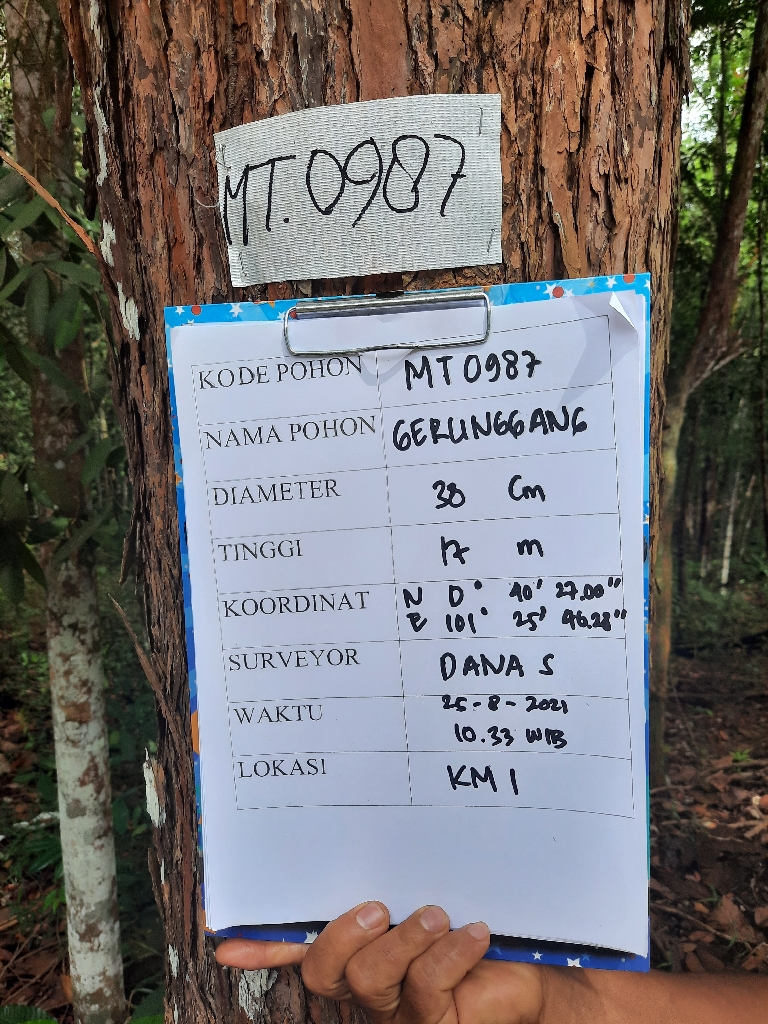 MT.0987
KODE POHON MT0987
NAMA POHON GERUNGGANG
DIAMETER 38 Cm
TINGGI 17 m
KOORDINAT N 0° 40' 27.00"
E 101° 25' 46.28"
SURVEYOR DANA S
WAKTU 25-8-2021
10.33 WIB
LOKASI KM 1